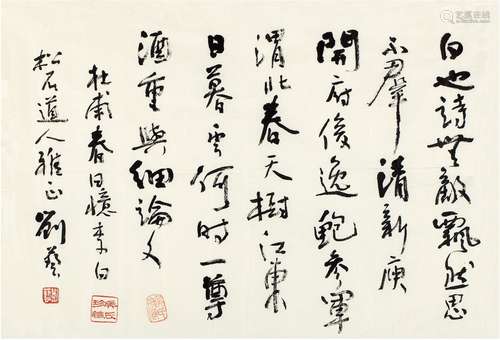 白也詩無敵飄然思
不羣清新庾
開府俊逸鮑參軍
渭北春天樹江東
日暮雲何時一尊
酒重與細論文
杜甫春日憶李白
松石道人雅正劉藝